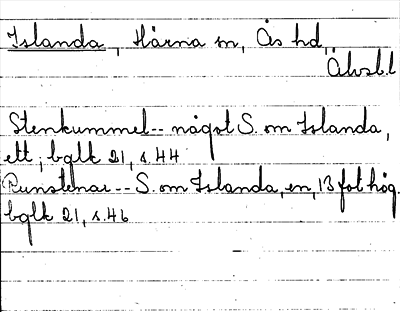 Islanda, Härna sn, Ås hd,
Älvsb.l
Stenkummel-- något S. om Islanda,
ett; bglk 21, s.44
Runstenar-- S. om Islanda, en, 13 fot hög.
bglk 21, s.46